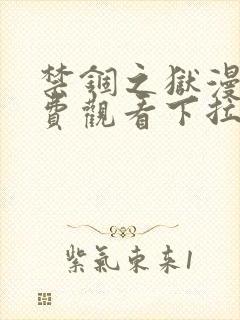 禁錮之獄漫
費觀看下拉
紫氣東來1